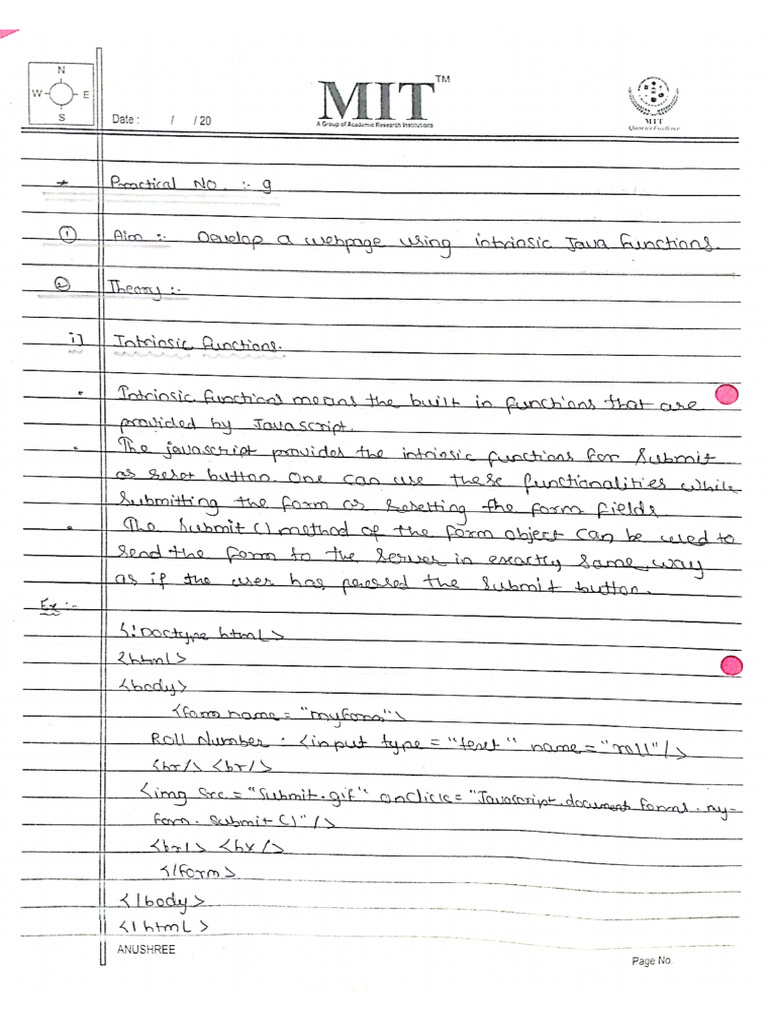 N
W E
S
Date : / / 20
MIT™
A Group of Academic Research Institutions
MIT
* Practical No. :- 9
① Aim :- Develop a webpage using intrinsic Java Functions.
② Theory :-
i] Intrinsic functions.
• Intrinsic functions means the built in functions that are
provided by Javascript.
• The javascript provides the intrinsic functions for submit
or reset button. One can use these functionalities while
submitting the form or resetting the form fields
• The submit () method of the form object can be used to
send the form to the server in exactly same way
as if the user has pressed the submit button.
Ex :-
<!Doctype html>
<html>
<body>
<form name = "myform">
Roll Number : <input type = "text" name = "roll"/>
<br/> <br/>
<img src = "submit.gif" onclick = "Javascript.document forms . my-
form. submit ()"/>
<br/> <br/>
</form>
</body>
</html>
ANUSHREE
Page No.